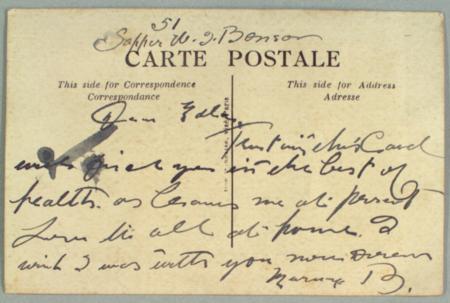 51
Sapper W. J. Benson
CARTE POSTALE
This side for Correspondence
Correspondance
This side for Address
Adresse
Dear
Trusting this Card
will find you in the best of
health. as leaves me at present
Love to all at home. I
wish I was with you now
B.